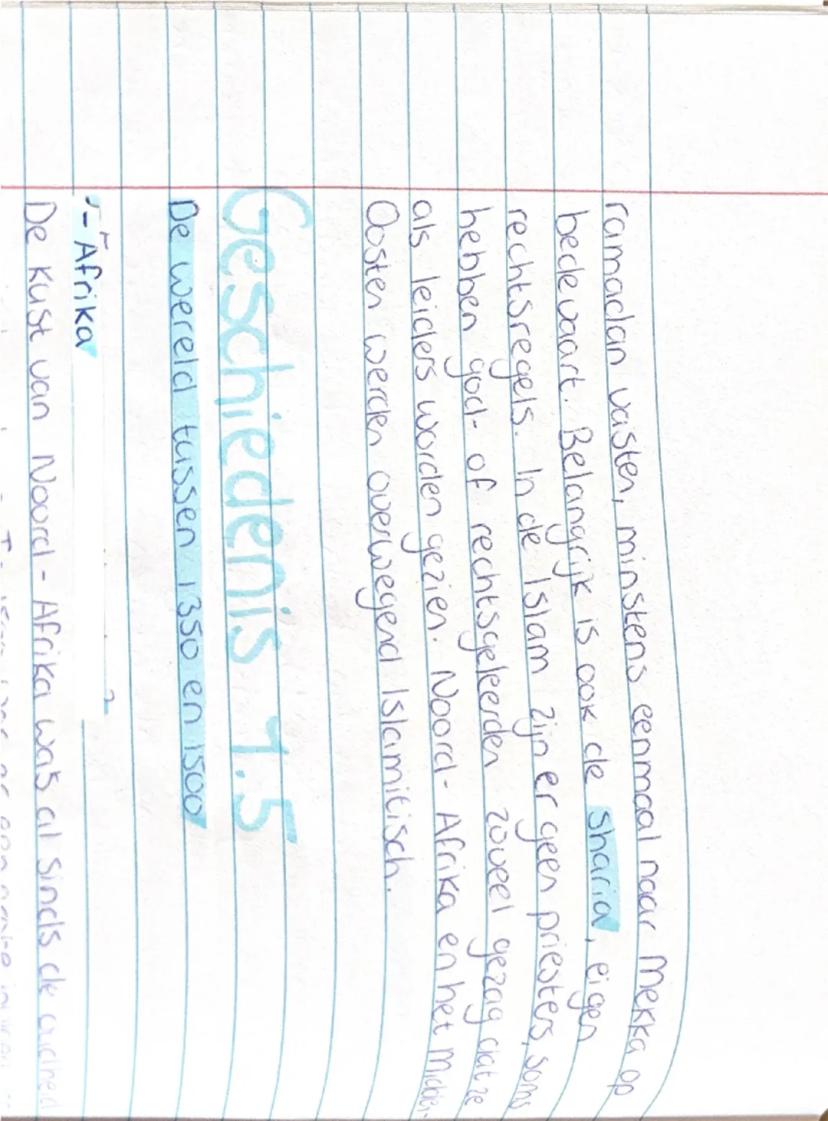 ramadan vasten, minstens eenmaal naar Mekka op
bedevaart. Belangrijk is ook de sharia, eigen
rechtsregels. In de Islam zijn er geen priesters, soms
hebben god- of rechtsgeleerden zoveel gezag dat ze
als leiders worden gezien. Noord-Afrika en het Midden-
Oosten werden overwegend Islamitisch.
Geschiedenis 1.5
De wereld tussen 1350 en 1500
- Afrika
De kust van Noord-Afrika was al sinds de oudheid